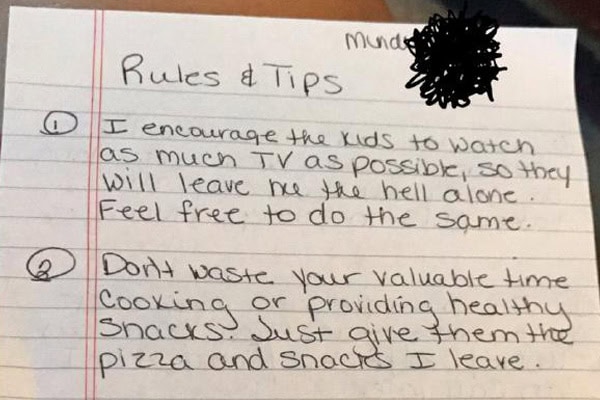 Mind
Rules & Tips
① I encourage the kids to watch
as much TV as possible, so they
will leave me the hell alone.
Feel free to do the same.
② Don't waste your valuable time
cooking or providing healthy
snacks. Just give them the
pizza and snacks I leave.